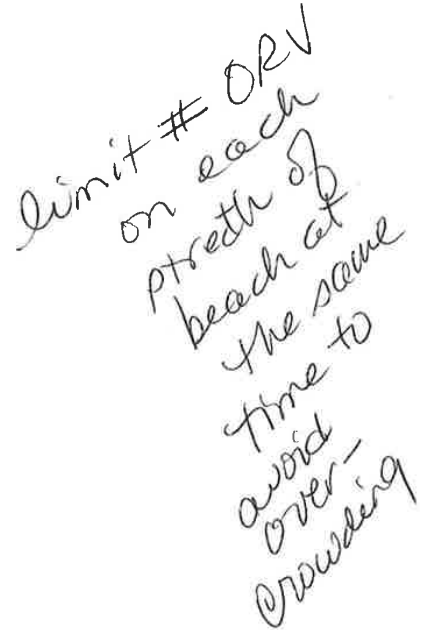 limit # ORV
on each
stretch of
beach at
the same
time to
avoid
over-
crowding